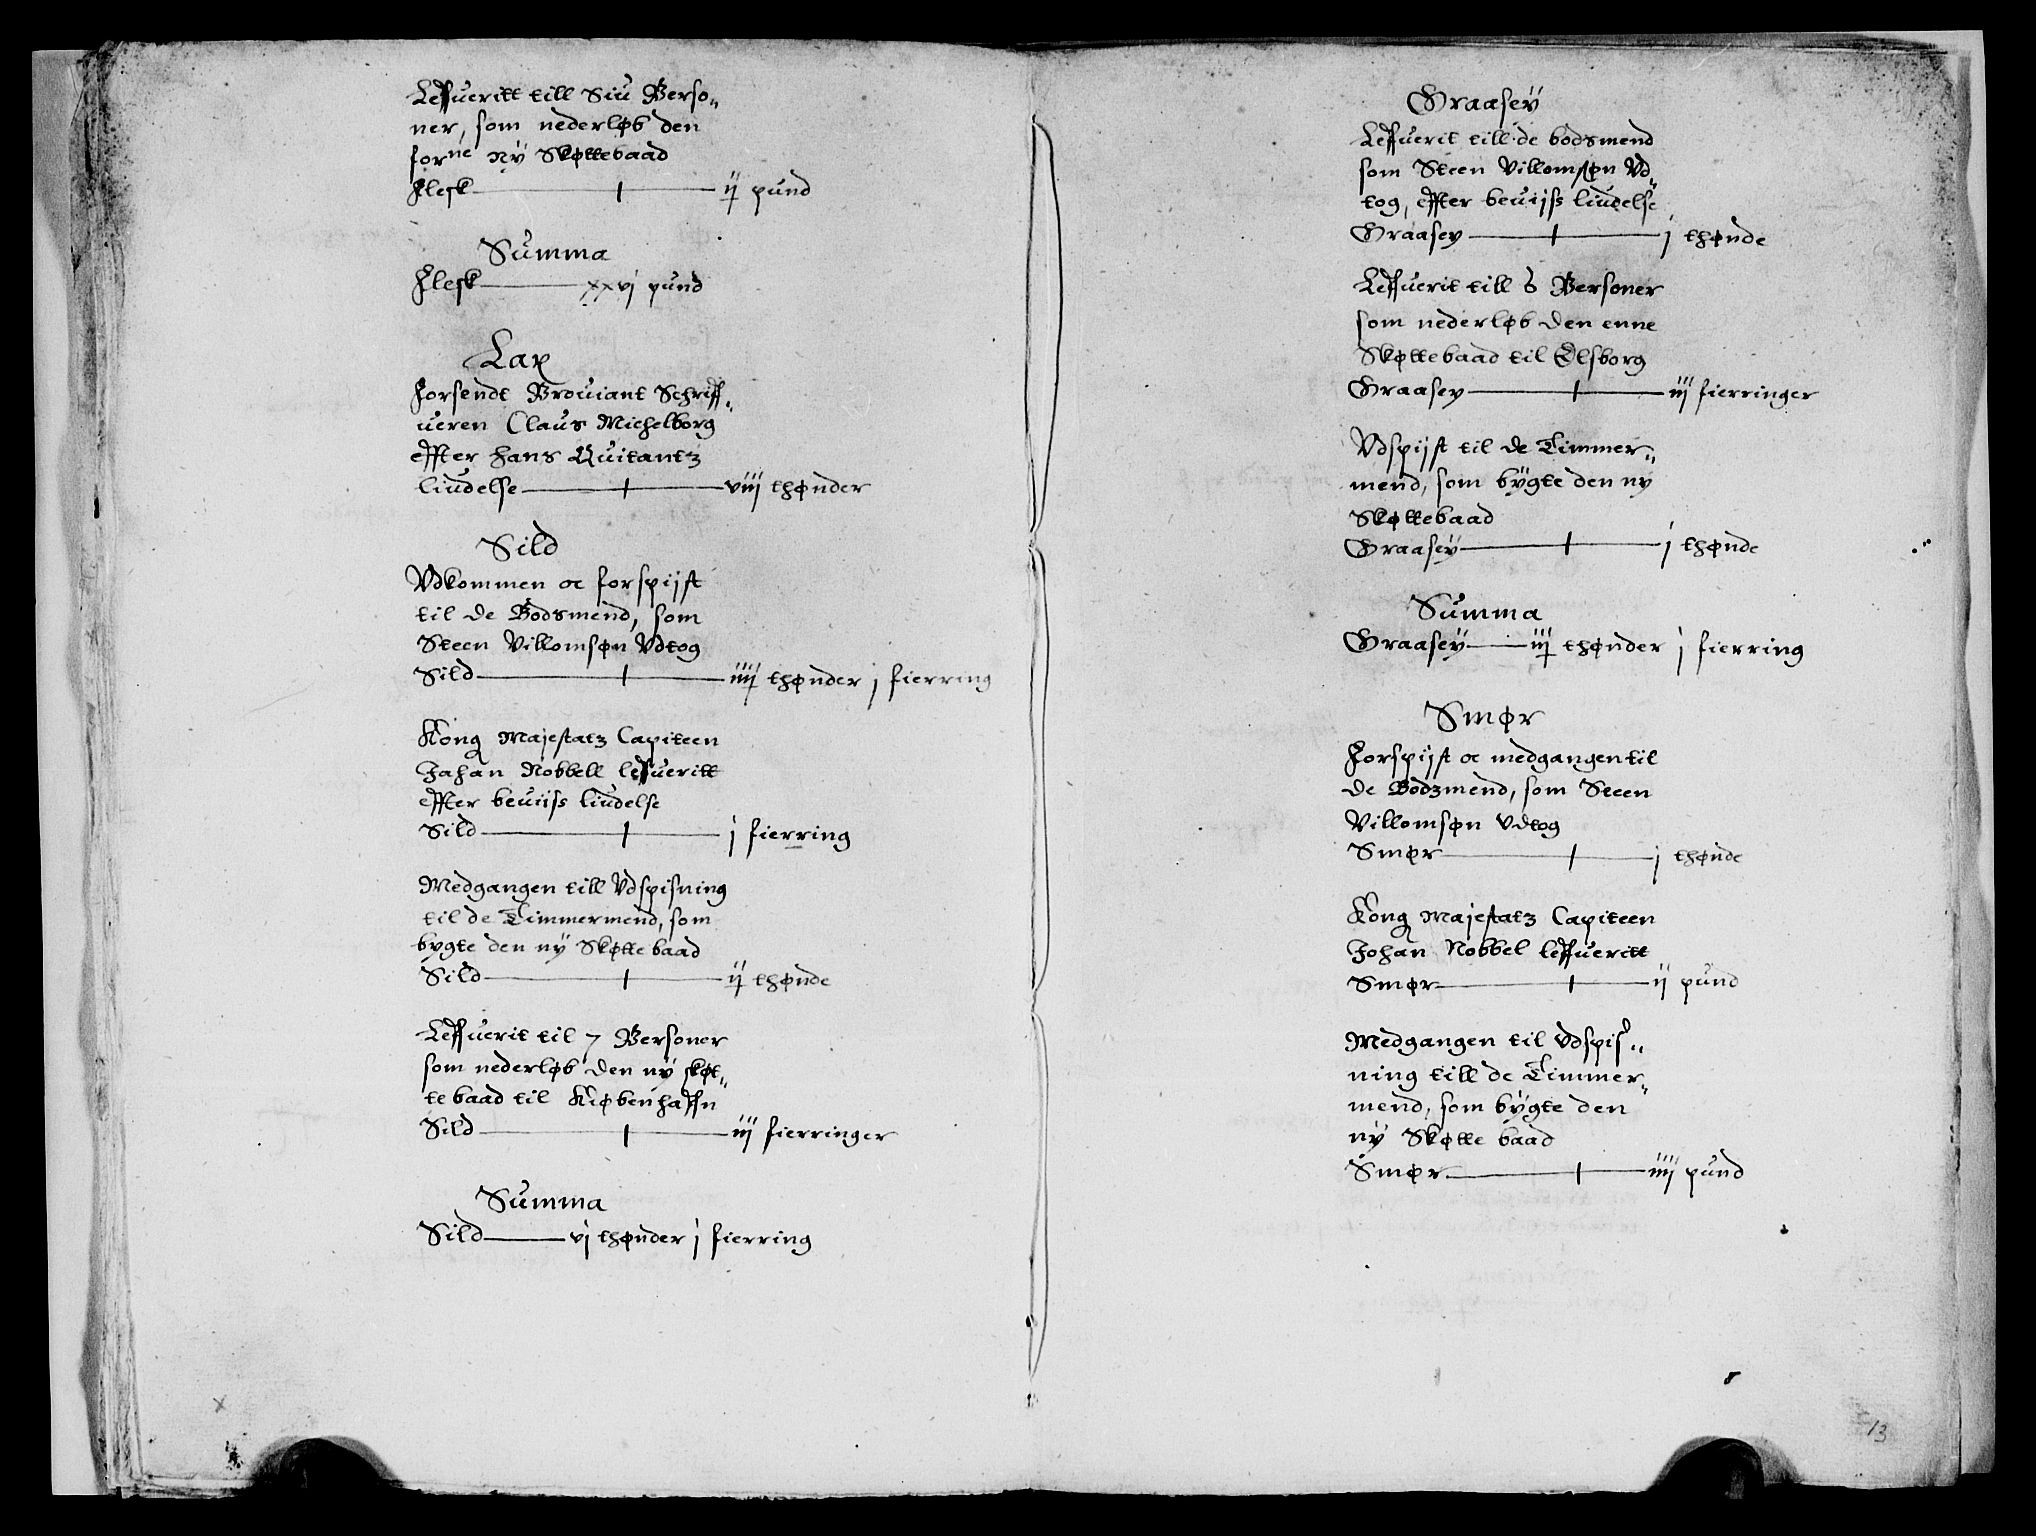 Leffueritt till Siu Perso„
ner, som nederløb den
forne ny Skøttebaad
Flesk ——— ij pund
Summa
Flesk ——— xxvj pund
Lax
Forsendt Prouiant Schriff„
ueren Claus Michelborg
effter hans Quitantz
liudelse ——— viij thønder
Sild
Vdkommen oc forspijst
til de Bodsmend, som
Steen Villomsøn Vdtog
Sild ——— iiij thønder j fierring
Kong Majestatz Capiteen
Johan Nobbell leffueritt
effter beuiiss liudelse
Sild ——— j fierring
Medgangen till Vdspisning
til de Timmermend, som
bygte den ny Skøtte baad
Sild ——— ij thønde
Leffuerit til 7 Personer
som nederløb den ny skøt„
te baad til Kiøbenhaffn
Sild ——— iij fierringer
Summa
Sild ——— vj thønder j fierring
Graasey
Leffuerit till de bodsmend
som Steen Villomsøn Vd„
tog, effter beuijss liudelse
Graasey ——— j thønde
Leffuerit till 8 Personer
som nederløb den enne
Skøttebaad til Elsborg
Graasey ——— iij fierringer
Vdspijst til de Timmer„
mend, som bygte den ny
Skøttebaad
Graasey ——— j thønde
Summa
Graasey ——— iij thønder j fierring
Smør
Forspijst oc medgangen til
de Bodzmend, som Steen
Villomsøn vdtog
Smør ——— j thønde
Kong Majestatz Capiteen
Johan Nobbel leffueritt
Smør ——— ij pund
Medgangen til vdspis„
ning till de Timmer„
mend, som bygte den
ny Skøtte baad
Smør ——— iiij pund
13